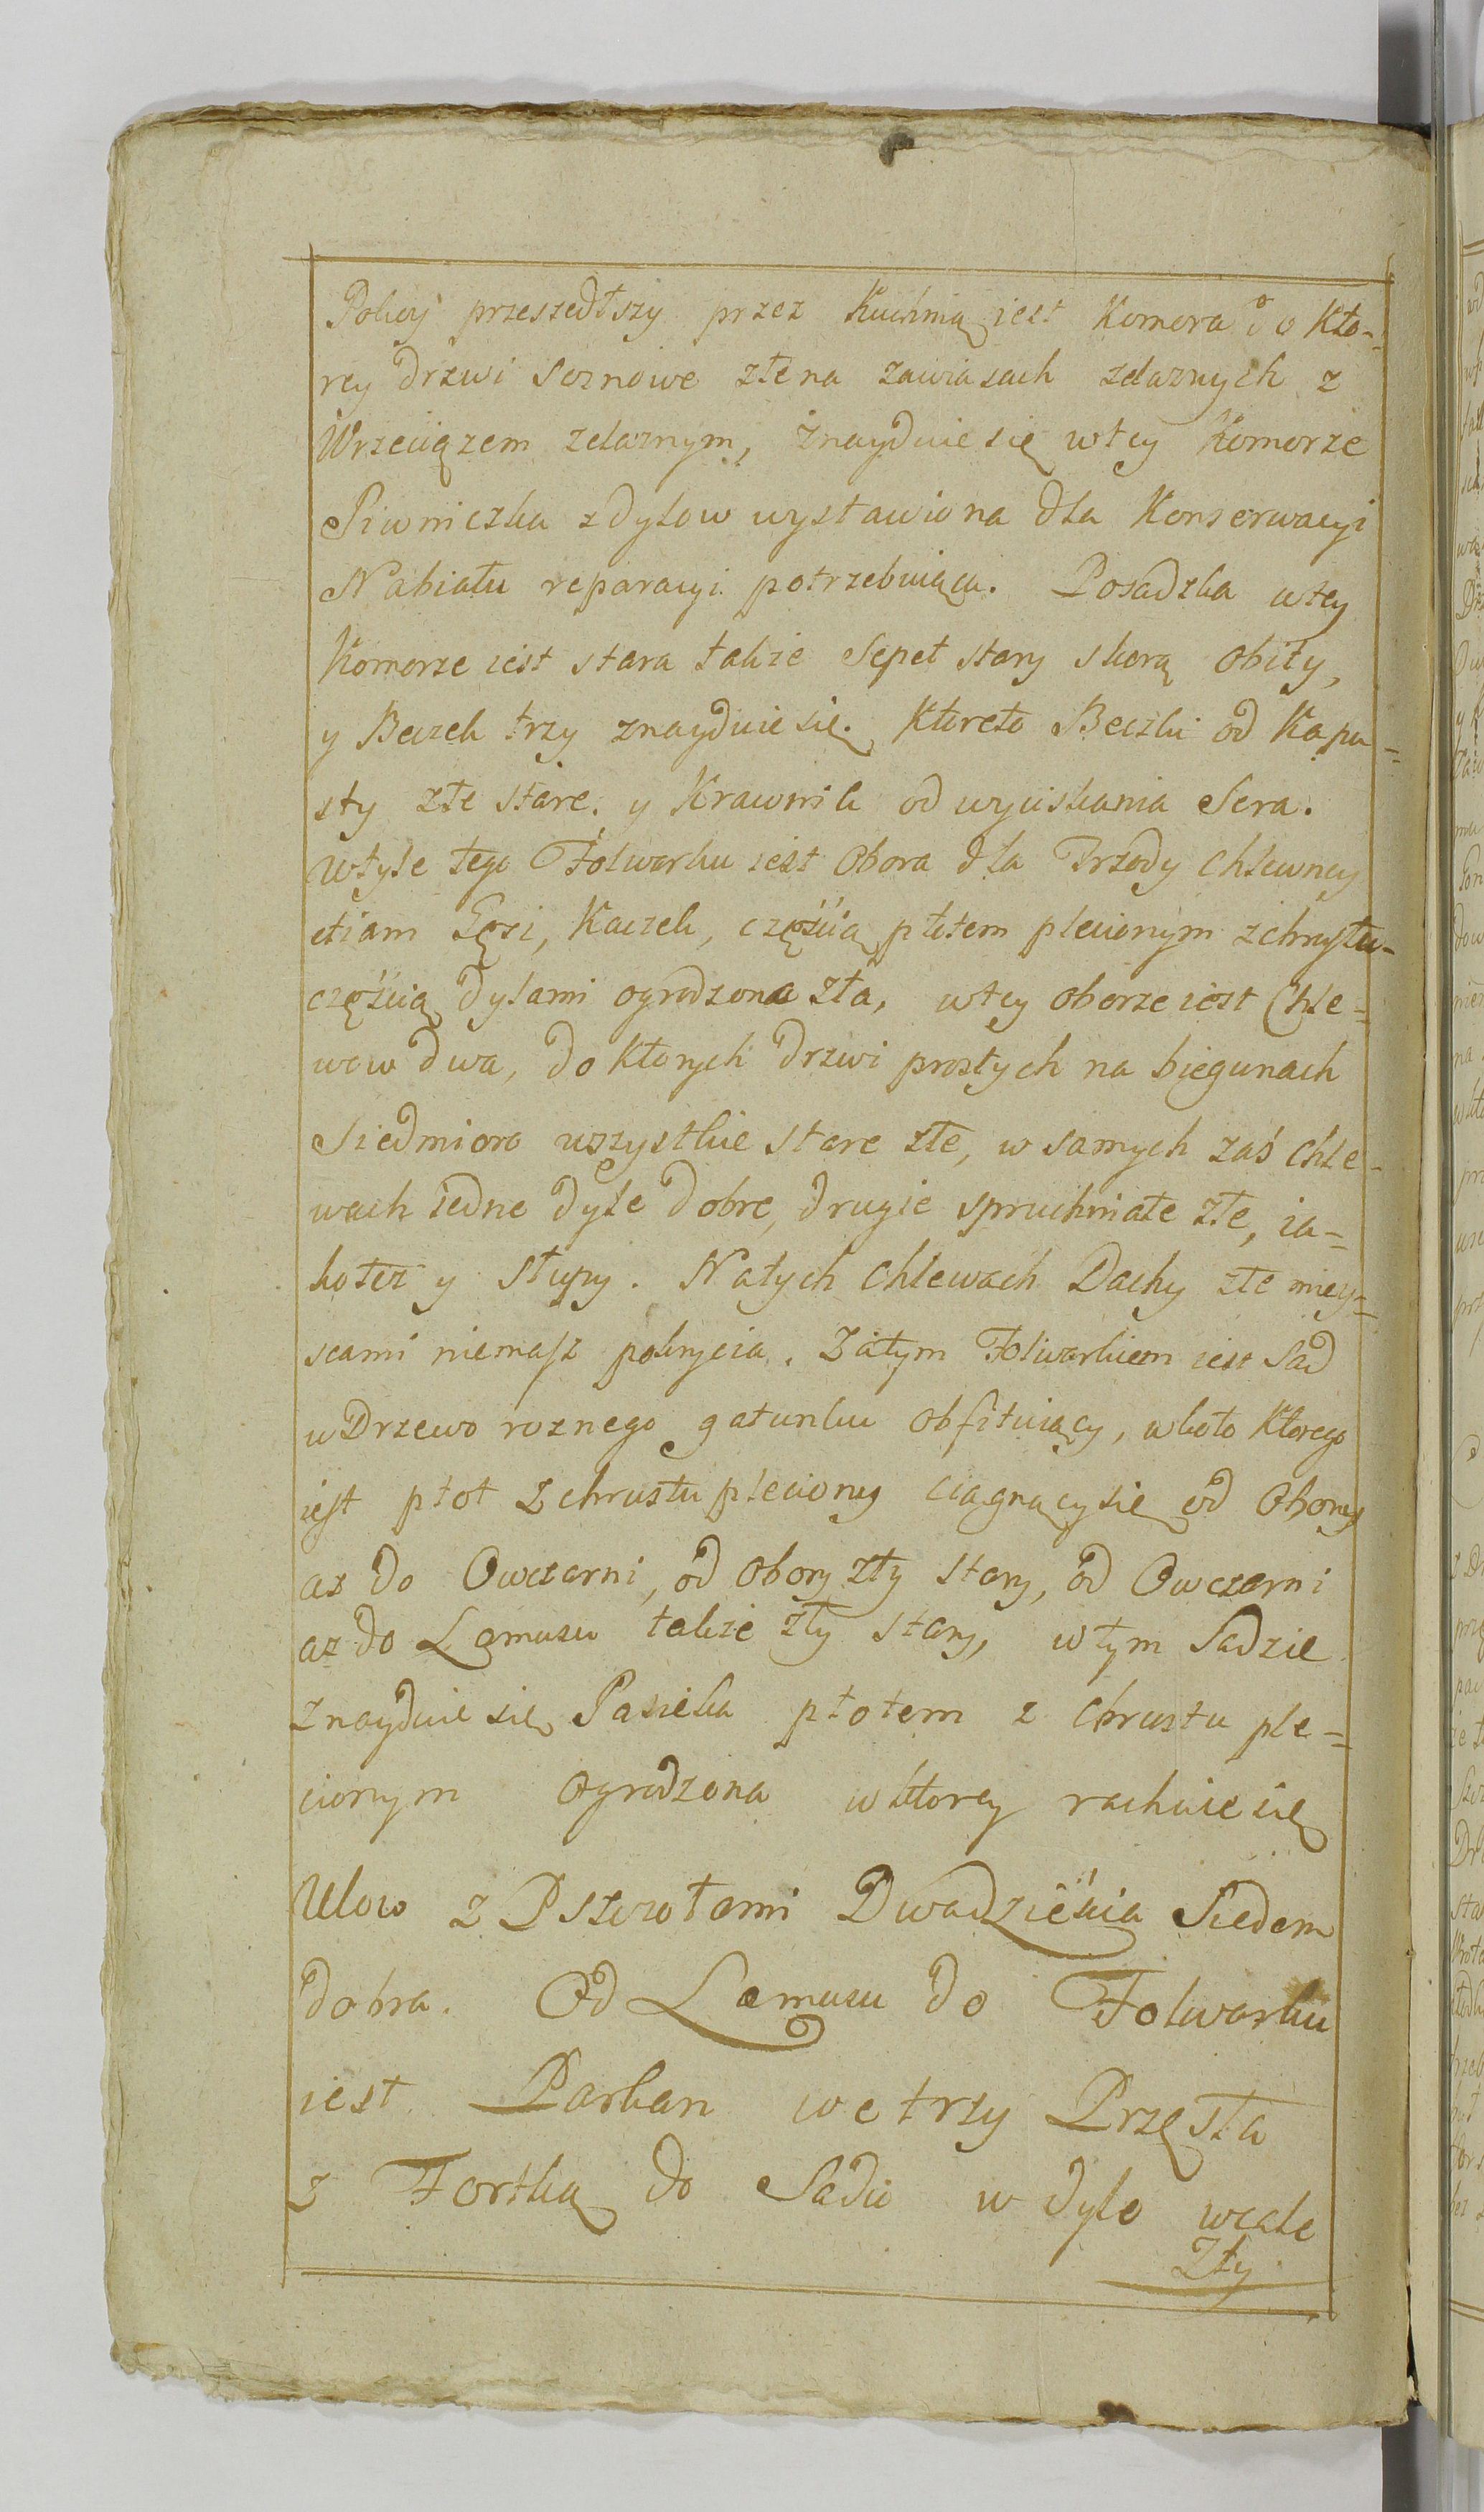 Pokoy przeszedłszy przez Kuchnią iest Komora do kto-
rey drzwi sosnowe złe na zawiasach zelaznych z
Wrzeciązem zelaznym, znayduie się w tey Komorze
Piwniczka z dylow wystawiona dla Konserwacyi
Nabiału reparacyi potrzebuiąca. Posadzka w tey
Komorze iest stara także Sepet stary skorą obity,
y Beczek trzy znayduie się. Ktoreto Beczki od Kapu-
sty złe stare. y Krawnik od wyciskania Sera.
W tyle tego Folwarku iest Obora dla Trzody chlewney
etiam Gęsi, Kaczek, częścią płotem plecionym z chrustu
częścią dylami ogrodzona zła, w tey oborze iest Chle-
wow dwa, do ktorych drzwi prostych na biegunach
Siedmioro wszystkie stare złe, w samych zaś chle-
wach iedne dyle dobre, drugie spruchniałe złe, ia-
kotez y słupy. Na tych chlewach Dachy złe miey-
scami niemasz pokrycia. Za tym Folwarkiem iest Sad
w Drzewo roznego gatunku obfituiący, wkoło ktorego
iest płot z chrustu pleciony ciągnący się od Obory
az do Owczarni, od obory zły stary, od Owczarni
az do Lamusu także zły stary, w tym Sadzie
znayduie się Pasieka płotem z chrustu ple-
cionym ogrodzona w ktorey rachuie się
Ulow z Pszczołami Dwadzieścia Siedem
dobra. Od Lamusu do Folwarku
iest Parkan we trzy Przęsła
z Fortką do Sadu w dyle wcale
Zły